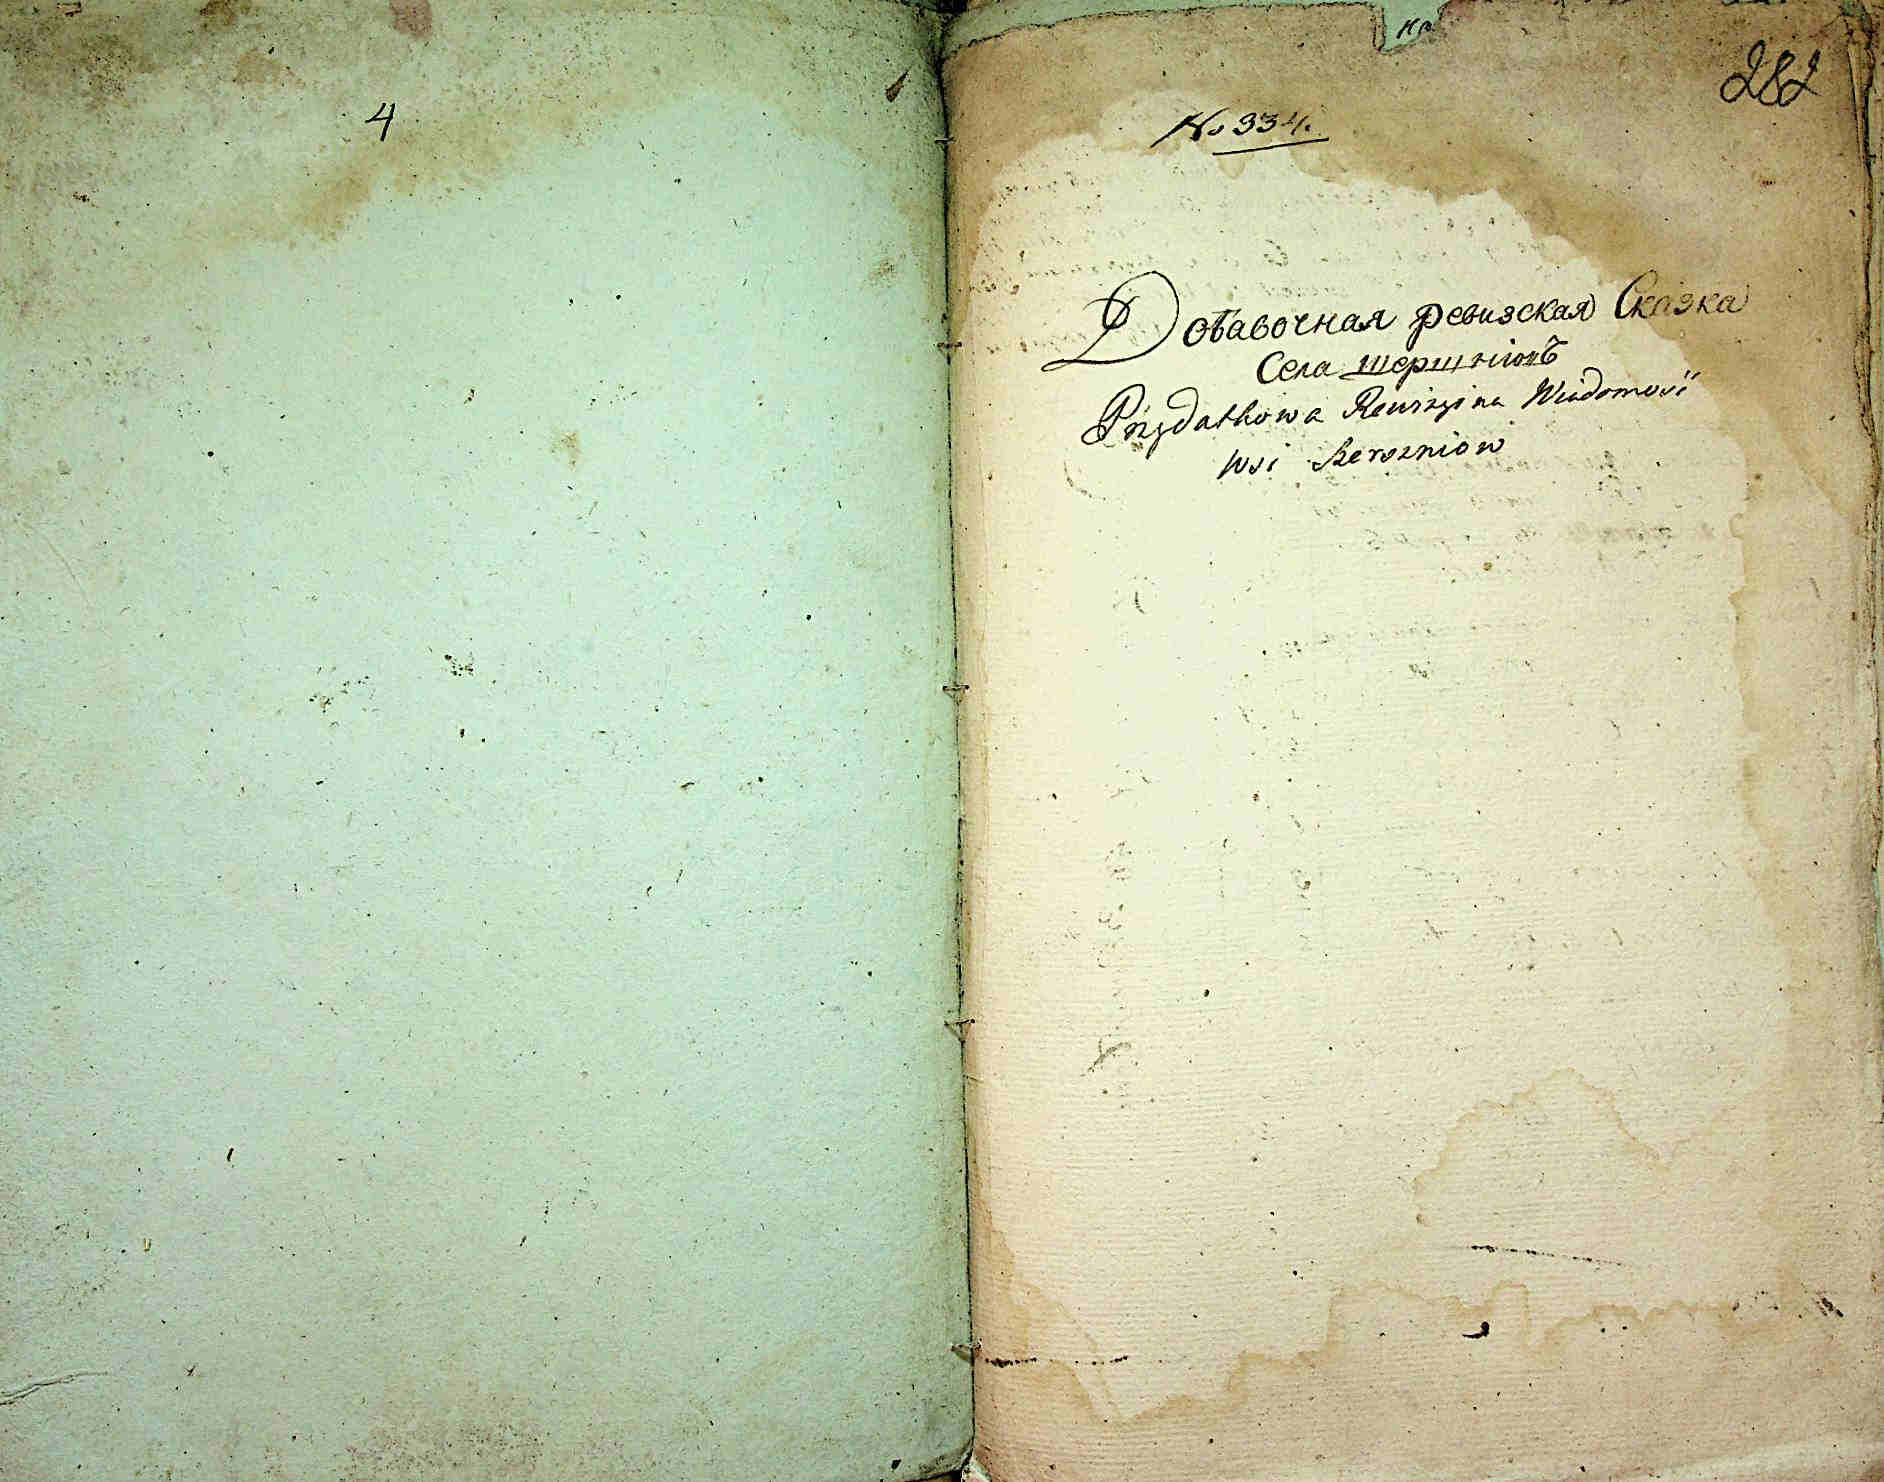 4
на
282
№ 334.
Добавочная ревизская Сказка
Села шершнїовъ
Przydatkowa Rewizyina Wiadomość
wsi Szerszniow